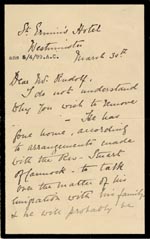 St. Ermin's Hotel
Westminster
March 30th
Dear Mr. Rudolf.
I do not understand
why you wish to remove
— He has
gone home, according
to arrangements made
with the Rev. Stuart
to talk
over the matter of his
emigration with his family,
& he will probably